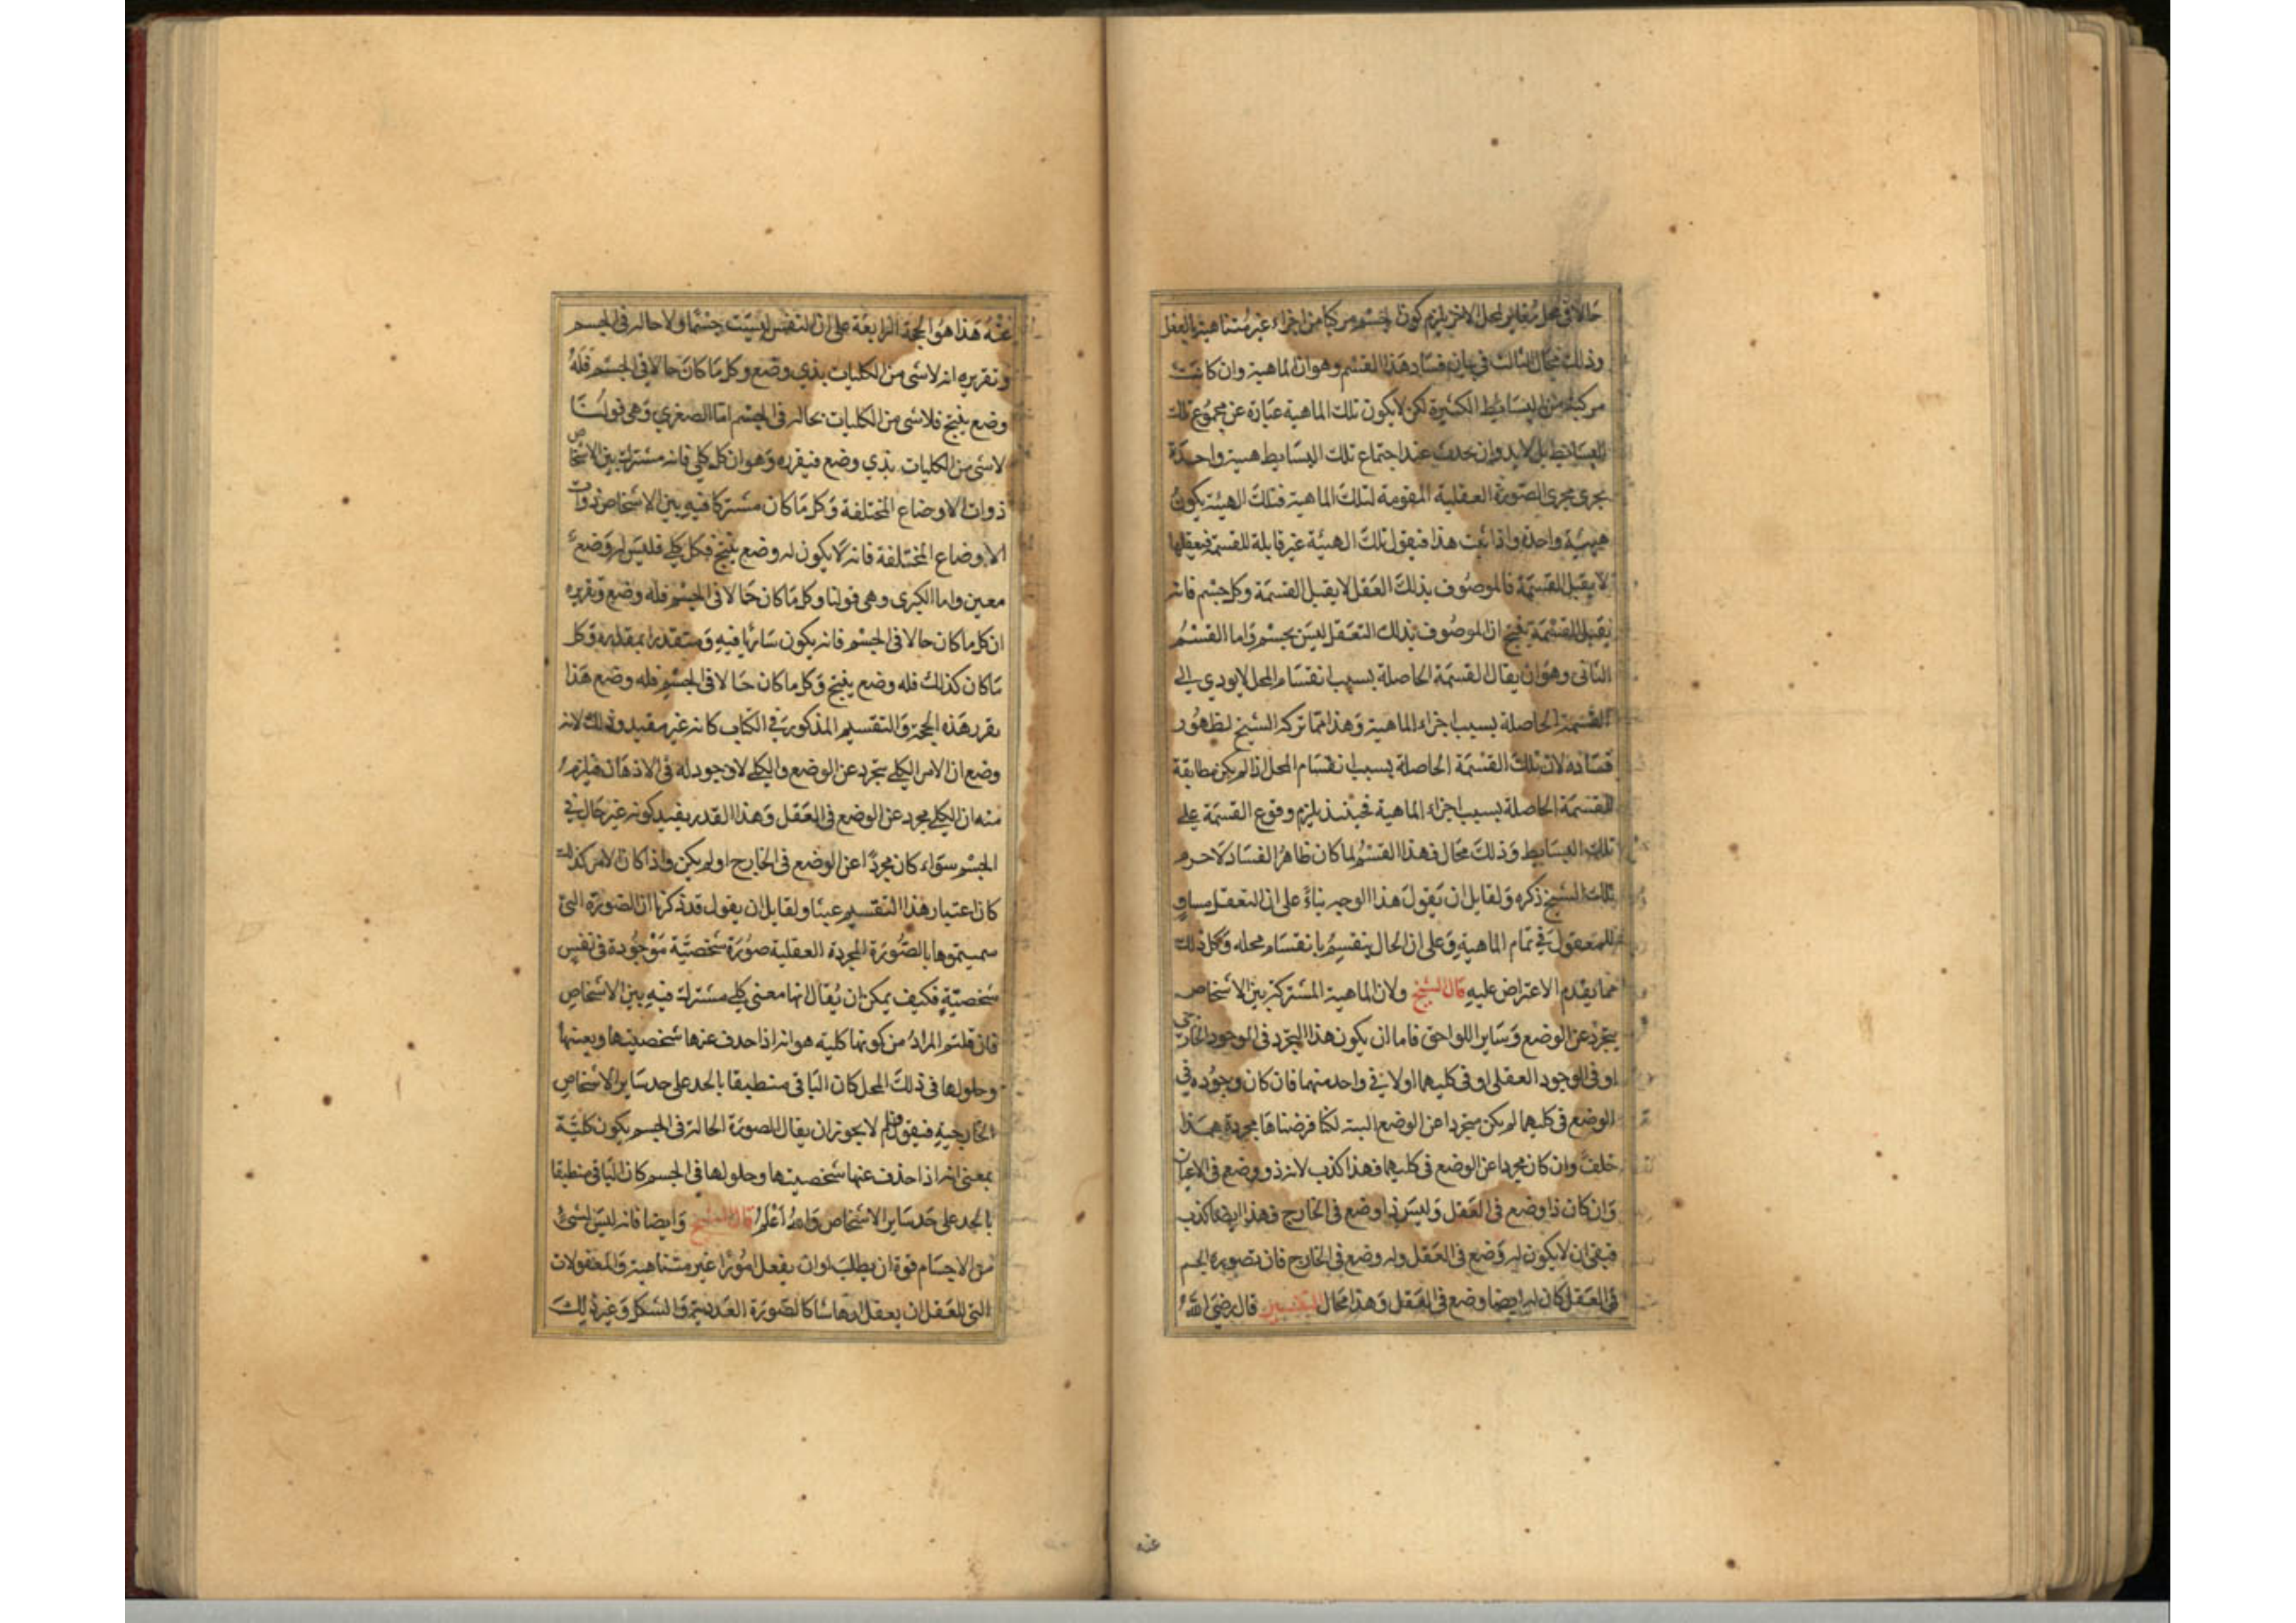 حالا في محل مغاير لمحل الاخر يلزم كون الجسم مركبا من اجزاء غير متناهية بالفعل
وذلك محال الثالث في بيان فساد هذا القسم وهو ان الماهية وان كانت
مركبة من البسايط الكثيرة لكن لا يكون تلك الماهية عبارة عن مجموع تلك
البسايط بل لا بد وان يحدث عند اجتماع تلك البسايط هيئة واحدة
يجري مجرى الصورة العقلية المقومة لتلك الماهية فتلك الهيئة يكون
هيئة واحدة واذا ثبت هذا فنقول تلك الهيئة غير قابلة للقسمة فتعقلها
لا يقبل القسمة فالموصوف بذلك العقل لا يقبل القسمة وكل جسم فانه
يقبل القسمة ينتج ان الموصوف بذلك التعقل ليس بجسم واما القسم
الثاني وهو ان يقال القسمة الحاصلة بسبب انقسام المحل لا يودي الى
القسمة الحاصلة بسبب اجزاء الماهية وهذا مما تركه الشيخ لظهور
فساده لان تلك القسمة الحاصلة بسبب انقسام المحل اذا لم يكن مطابقة
للقسمة الحاصلة بسبب اجزاء الماهية فحينئذ يلزم وقوع القسمة على
تلك البسايط وذلك محال فهذا القسم لما كان ظاهر الفساد لا جرم
ترك الشيخ ذكره ولقايل ان يقول هذا الوجه بناء على ان التعقل مساو
للمعقول في تمام الماهية وعلى ان الحال ينقسم بانقسام محله وكل ذلك
مما يقدم الاعتراض عليه قال الشيخ ولان الماهية المشتركة بين الاشخاص
يتجرد عن الوضع وساير اللواحق فاما ان يكون هذا التجرد في الوجود الخارجي
او في الوجود العقلي او في كليهما او لا في واحد منهما فان كان وجوده في
الوضع في كليهما لم يكن متجردا عن الوضع البتة لكنا فرضناها مجردة هذا
خلف وان كان مجردا عن الوضع في كليهما فهذا كذب لانه ذو وضع في الاعيان
وان كان ذا وضع في العقل وليس ذا وضع في الخارج فهذا ايضا كذب
فبقى ان لا يكون له وضع في العقل وله وضع في الخارج فان تصوره الجسم
في العقل كان له ايضا وضع في العقل وهذا محال التفسير قال رضي الله
عنه
عنه هذا هو الحجة الرابعة على ان النفس ليست جسما ولا حالة في الجسم
وتقريره انه لا شي من الكليات بذي وضع وكل ما كان حالا في الجسم فله
وضع ينتج فلا شي من الكليات بحالة في الجسم اما الصغرى وهي قولنا
لا شي من الكليات بذي وضع فنقرره وهو ان كل كلي فانه مشترك بين الاشخاص
ذوات الاوضاع المختلفة وكل ما كان مشتركا فيه بين الاشخاص ذوات
الاوضاع المختلفة فانه لا يكون له وضع ينتج فكل كلي فليس له وضع
معين واما الكبرى وهي قولنا وكل ما كان حالا في الجسم فله وضع وتقريره
ان كل ما كان حالا في الجسم فانه يكون ساريا فيه ومتقدرا بمقداره وكل
ما كان كذلك فله وضع ينتج وكل ما كان حالا في الجسم فله وضع هذا
تقرر هذه الحجة والتقسيم المذكور في الكتاب كانه غير مفيد وذلك لانه
وضع ان الامر الكلي يتجرد عن الوضع والكلي لا وجود له في الاذهان فيلزم
منه ان الكلي مجرد عن الوضع في العقل وهذا القدر يفيد كونه غير حال في
الجسم سواء كان مجردا عن الوضع في الخارج او لم يكن واذا كان الامر كذلك
كان اعتبار هذا التقسيم عبثا ولقايل ان يقول قد ذكرنا ان الصورة التي
سميتموها بالصورة المجردة العقلية صورة شخصية موجودة في نفس
شخصية فكيف يمكن ان يقال انها معنى كلي مشترك فيه بين الاشخاص
فان قلتم المراد من كونها كلية هو انه اذا حذف عنها شخصيتها وتعينها
وحلولها في ذلك المحل كان الباقي منطبقا بالحد على حد ساير الاشخاص
الخارجية فنقول فلم لا يجوز ان يقال الصورة الحالة في الجسم يكون كلية
بمعنى انه اذا حذف عنها شخصيتها وحلولها في الجسم كان الباقي منطبقا
بالحد على حد ساير الاشخاص والله اعلم قال الشيخ وايضا فانه ليس لشي
من الاجسام قوة ان يطلب او ان يفعل امورا غير متناهية والمعقولات
التي للعقل ان يعقل ايها شا كالصورة العددية والشكل وغير ذلك